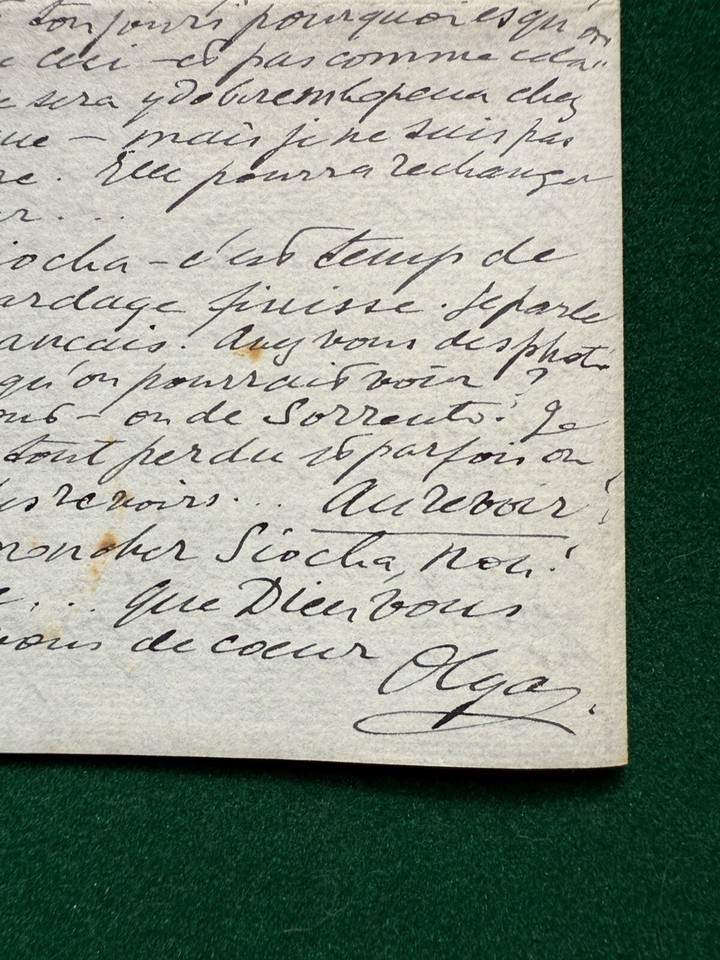 toujours pourquoi est qu'on
ceci - et pas comme cela"
sera chez
que - mais je ne suis pas
re. Elle pourra rechanger
r...
iocha - c'est temps de
ardage finisse. Je parle
ancais. Avez vous des photo
qu'on pourrait voir ?
- ou de Sorrento? Je
tout perdu et parfois on
revoirs... Au revoir!
mon cher Siocha, non!
... que Dieu vous
vous de coeur
Olga.